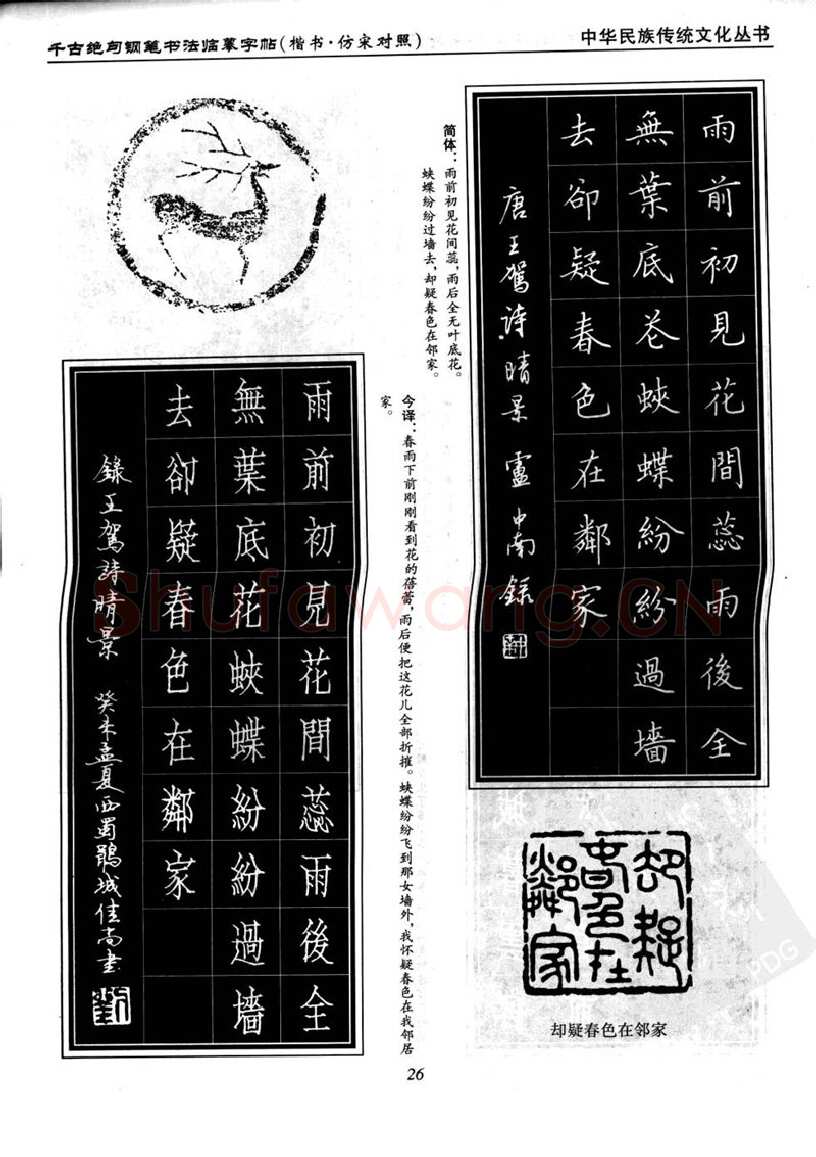 千古绝句钢笔书法临摹字帖(楷书·仿宋对照)
中华民族传统文化丛书
雨前初見花間蕊雨後全
無葉底花蛺蝶紛紛過墻
去卻疑春色在鄰家
唐王駕詩晴景盧中南錄
简体：雨前初见花间蕊，雨后全无叶底花。
蛱蝶纷纷过墙去，却疑春色在邻家。
今译：春雨下前刚刚看到花的蓓蕾，雨后便把这花儿全部折摧。蛱蝶纷纷飞到那女墙外，我怀疑春色在我邻居
家。
雨前初見花間蕊雨後全
無葉底花蛺蝶紛紛過墻
去卻疑春色在鄰家
錄王駕詩晴景 癸未孟夏西蜀鹃城佳尚書
劉
却疑
春色在
鄰家
却疑春色在邻家
Shufawang.CN
PDG
26